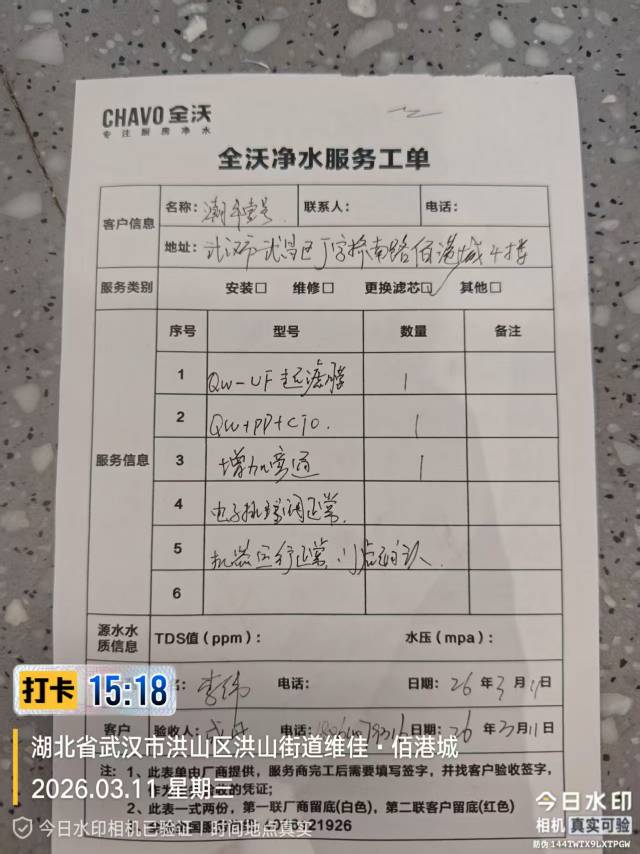 CHAVO 全沃
专注厨房净水
全沃净水服务工单
客户信息
名称：
联系人：
电话：
地址：武汉市武昌区丁字桥南路佰港城4楼
服务类别
安装□ 维修□ 更换滤芯□ 其他□
序号 型号 数量 备注
服务信息
1 QW-UF超滤膜 1
2 QW+PP+CTO. 1
3 增加旁通 1
4 正常.
5 机器运行正常.
6
源水水质信息
TDS值（ppm）：
水压（mpa）：
李纬 电话： 日期：26年3月11日
客户 验收人： 电话： 日期：26年3月11日
注：1、此表单由厂商提供，服务商完工后需要填写签字，并找客户验收签字，
作为 的凭证；
2、此表一式两份，第一联厂商留底(白色)，第二联客户留底(红色)
21926
打卡 15:18
湖北省武汉市洪山区洪山街道维佳·佰港城
2026.03.11 星期三
今日水印相机已验证 时间地点真实
今日水印
相机 真实可验
防伪 144TWTX9LXTPGW